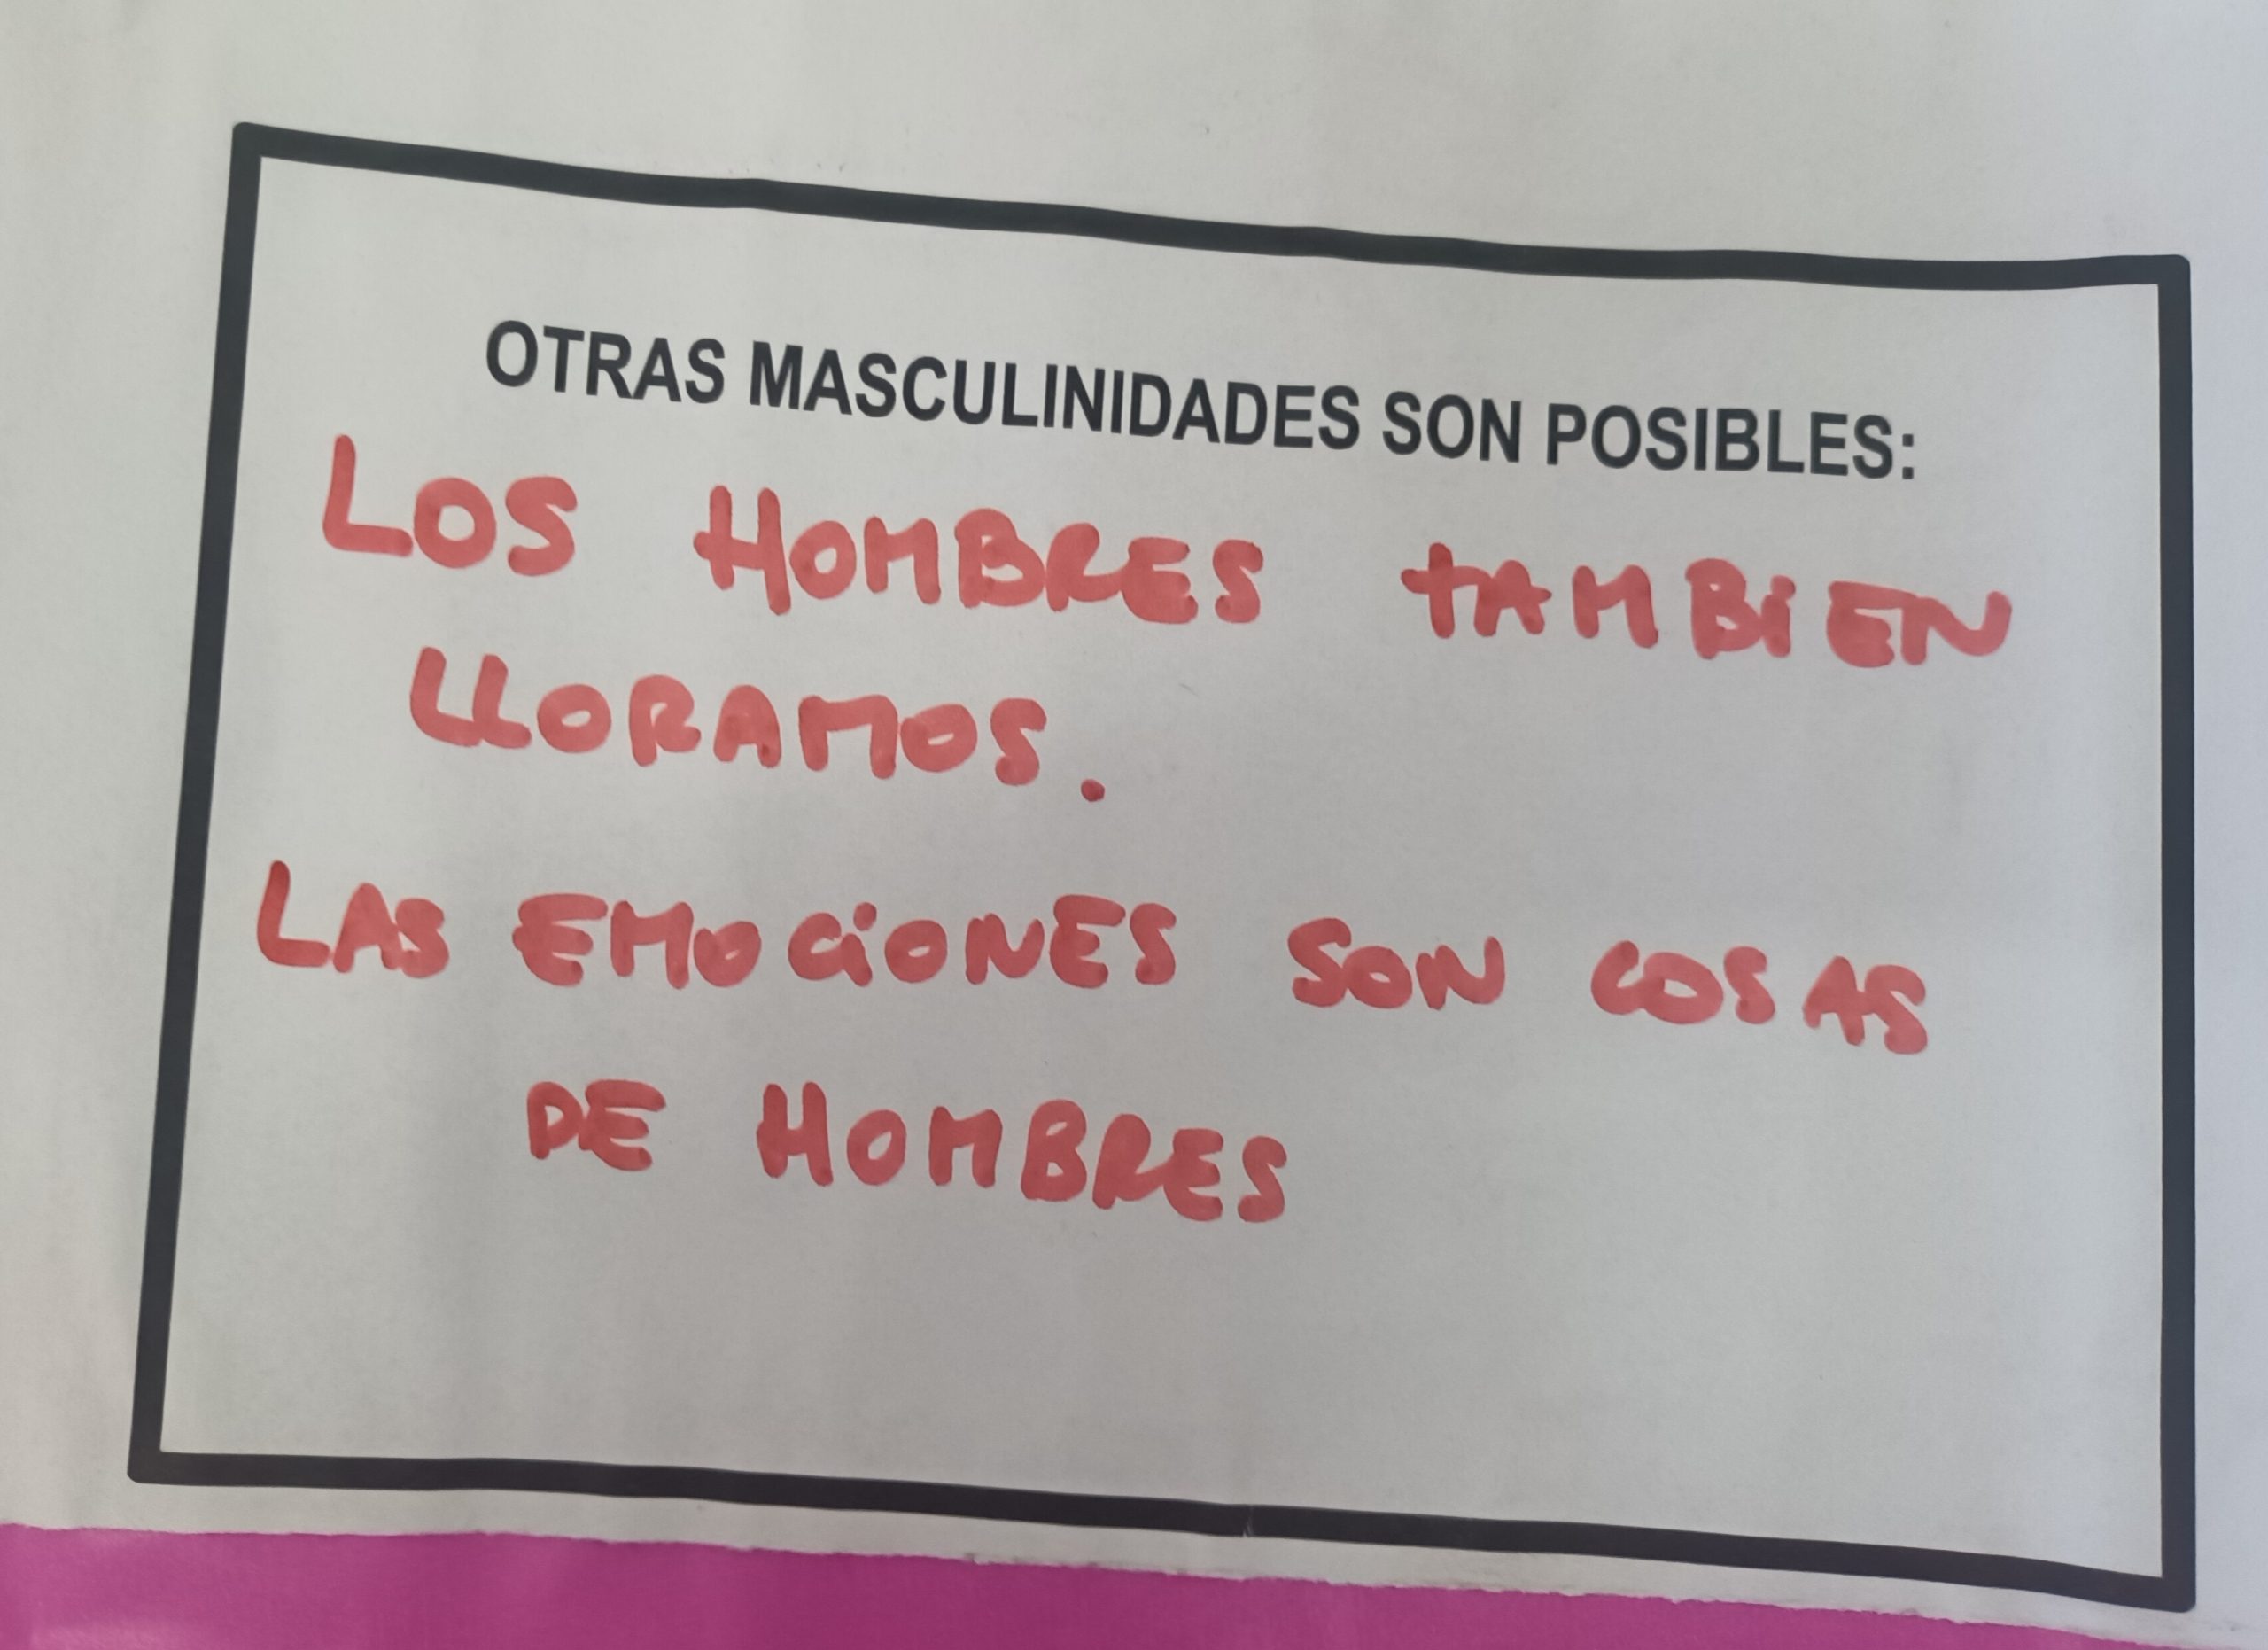 OTRAS MASCULINIDADES SON POSIBLES:
LOS HOMBRES TAMBIEN
LLORAMOS.
LAS EMOCIONES SON COSAS
DE HOMBRES